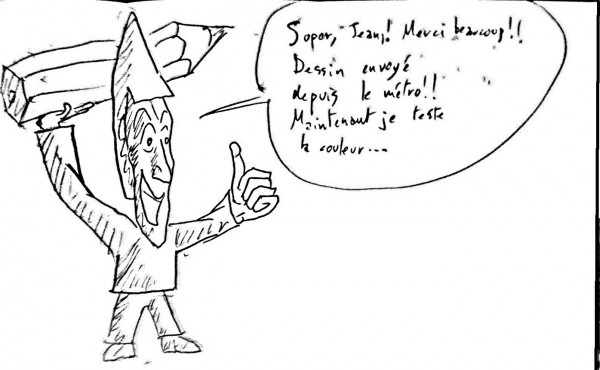 Soper, Jean,! Merci beaucoup!!
Dessin envoyé
depuis le métro!!
Maintenant je teste
la couleur...